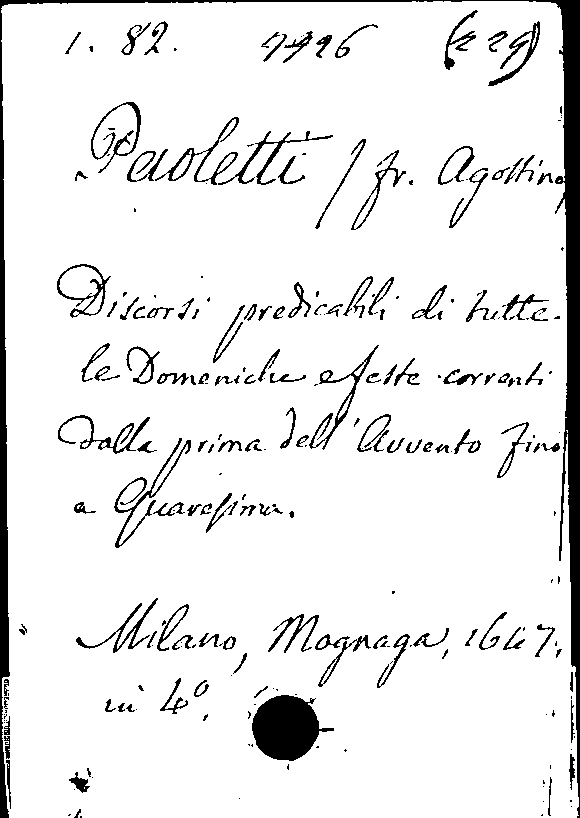 1. 82. 7926 (229)
Paoletti / fr. Agostino,
Discorsi predicabili di tutte
le Domeniche e feste correnti
dalla prima dell'Avvento fino
a Quaresima.
Milano, Mognaga, 1647.
in 4º.